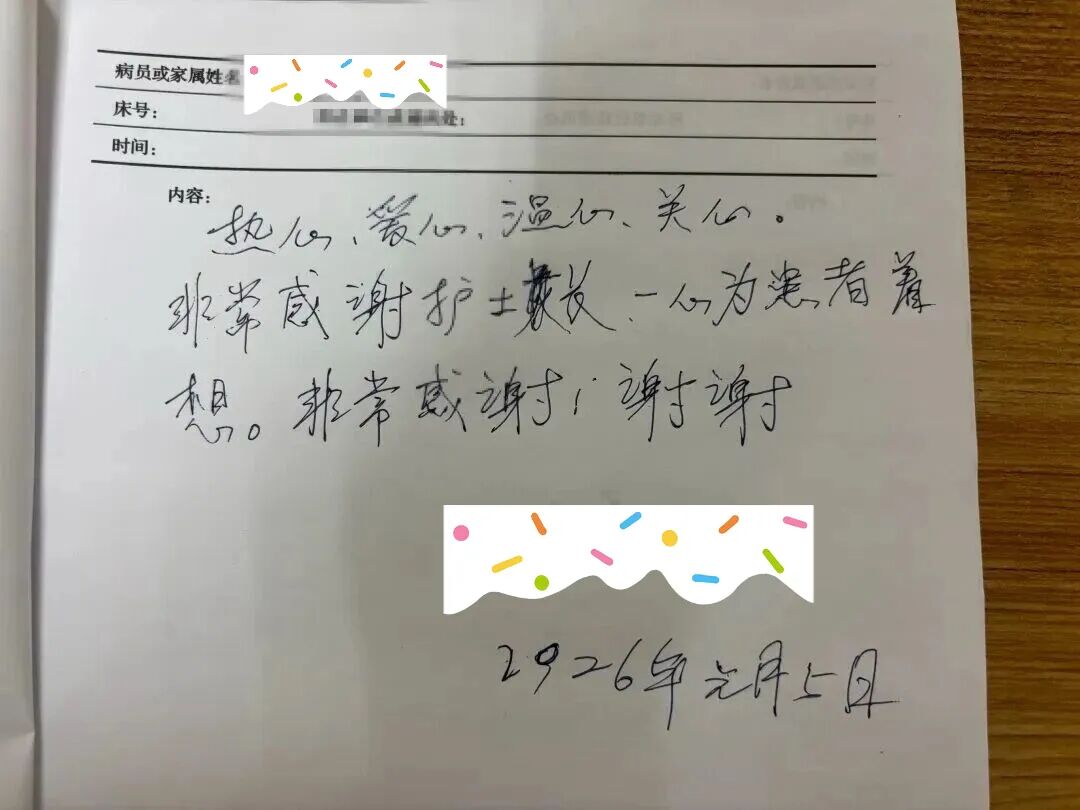 病员或家属姓名
床号： 处：
时间：
内容：
热心、爱心、温心、关心。
非常感谢护士长、一心为患者着
想。非常感谢；谢谢
2926年元月5日